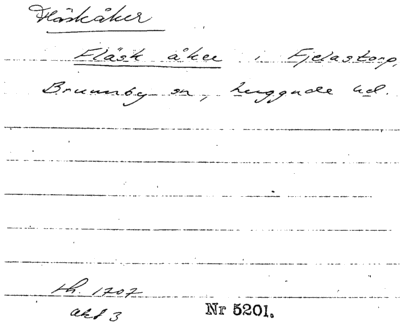 Fläskåker
Fläsk åker i Fjelastorp,
Brunnby sn, Luggude hd.
Lh. 1707
akt 3
Nr 5201.